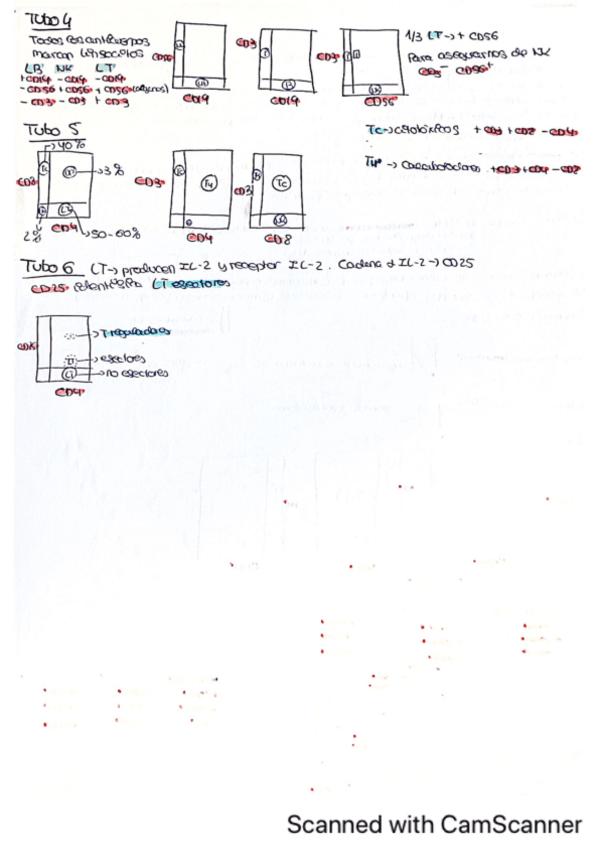 Tubo 4
Todos los anticuerpos
marcan linfocitos
LB NK LT
+CD19 -CD19 -CD19
-CD56 +CD56 +CD56 (algunos)
-CD3 -CD3 +CD3
CD56
CD19
CD3
CD19
CD3
CD56
1/3 LT → + CD56
Para asegurarnos de NK
CD3⁻ CD56⁺
Tubo 5
→ 40%
CD8
Tc
→ 3%
LT
2%
CD4
→ 50-60%
CD3
TH
CD4
CD3
Tc
CD8
Tc → citotóxicos +CD3 +CD8 -CD4
TH → Colaboradores +CD3 +CD4 -CD8
Tubo 6 LT → producen IL-2 y receptor IL-2. Cadena α IL-2 → CD25
CD25 identifica LT efectores
CD25
→ T reguladores
→ efectores
→ no efectores
LT
CD4
Scanned with CamScanner